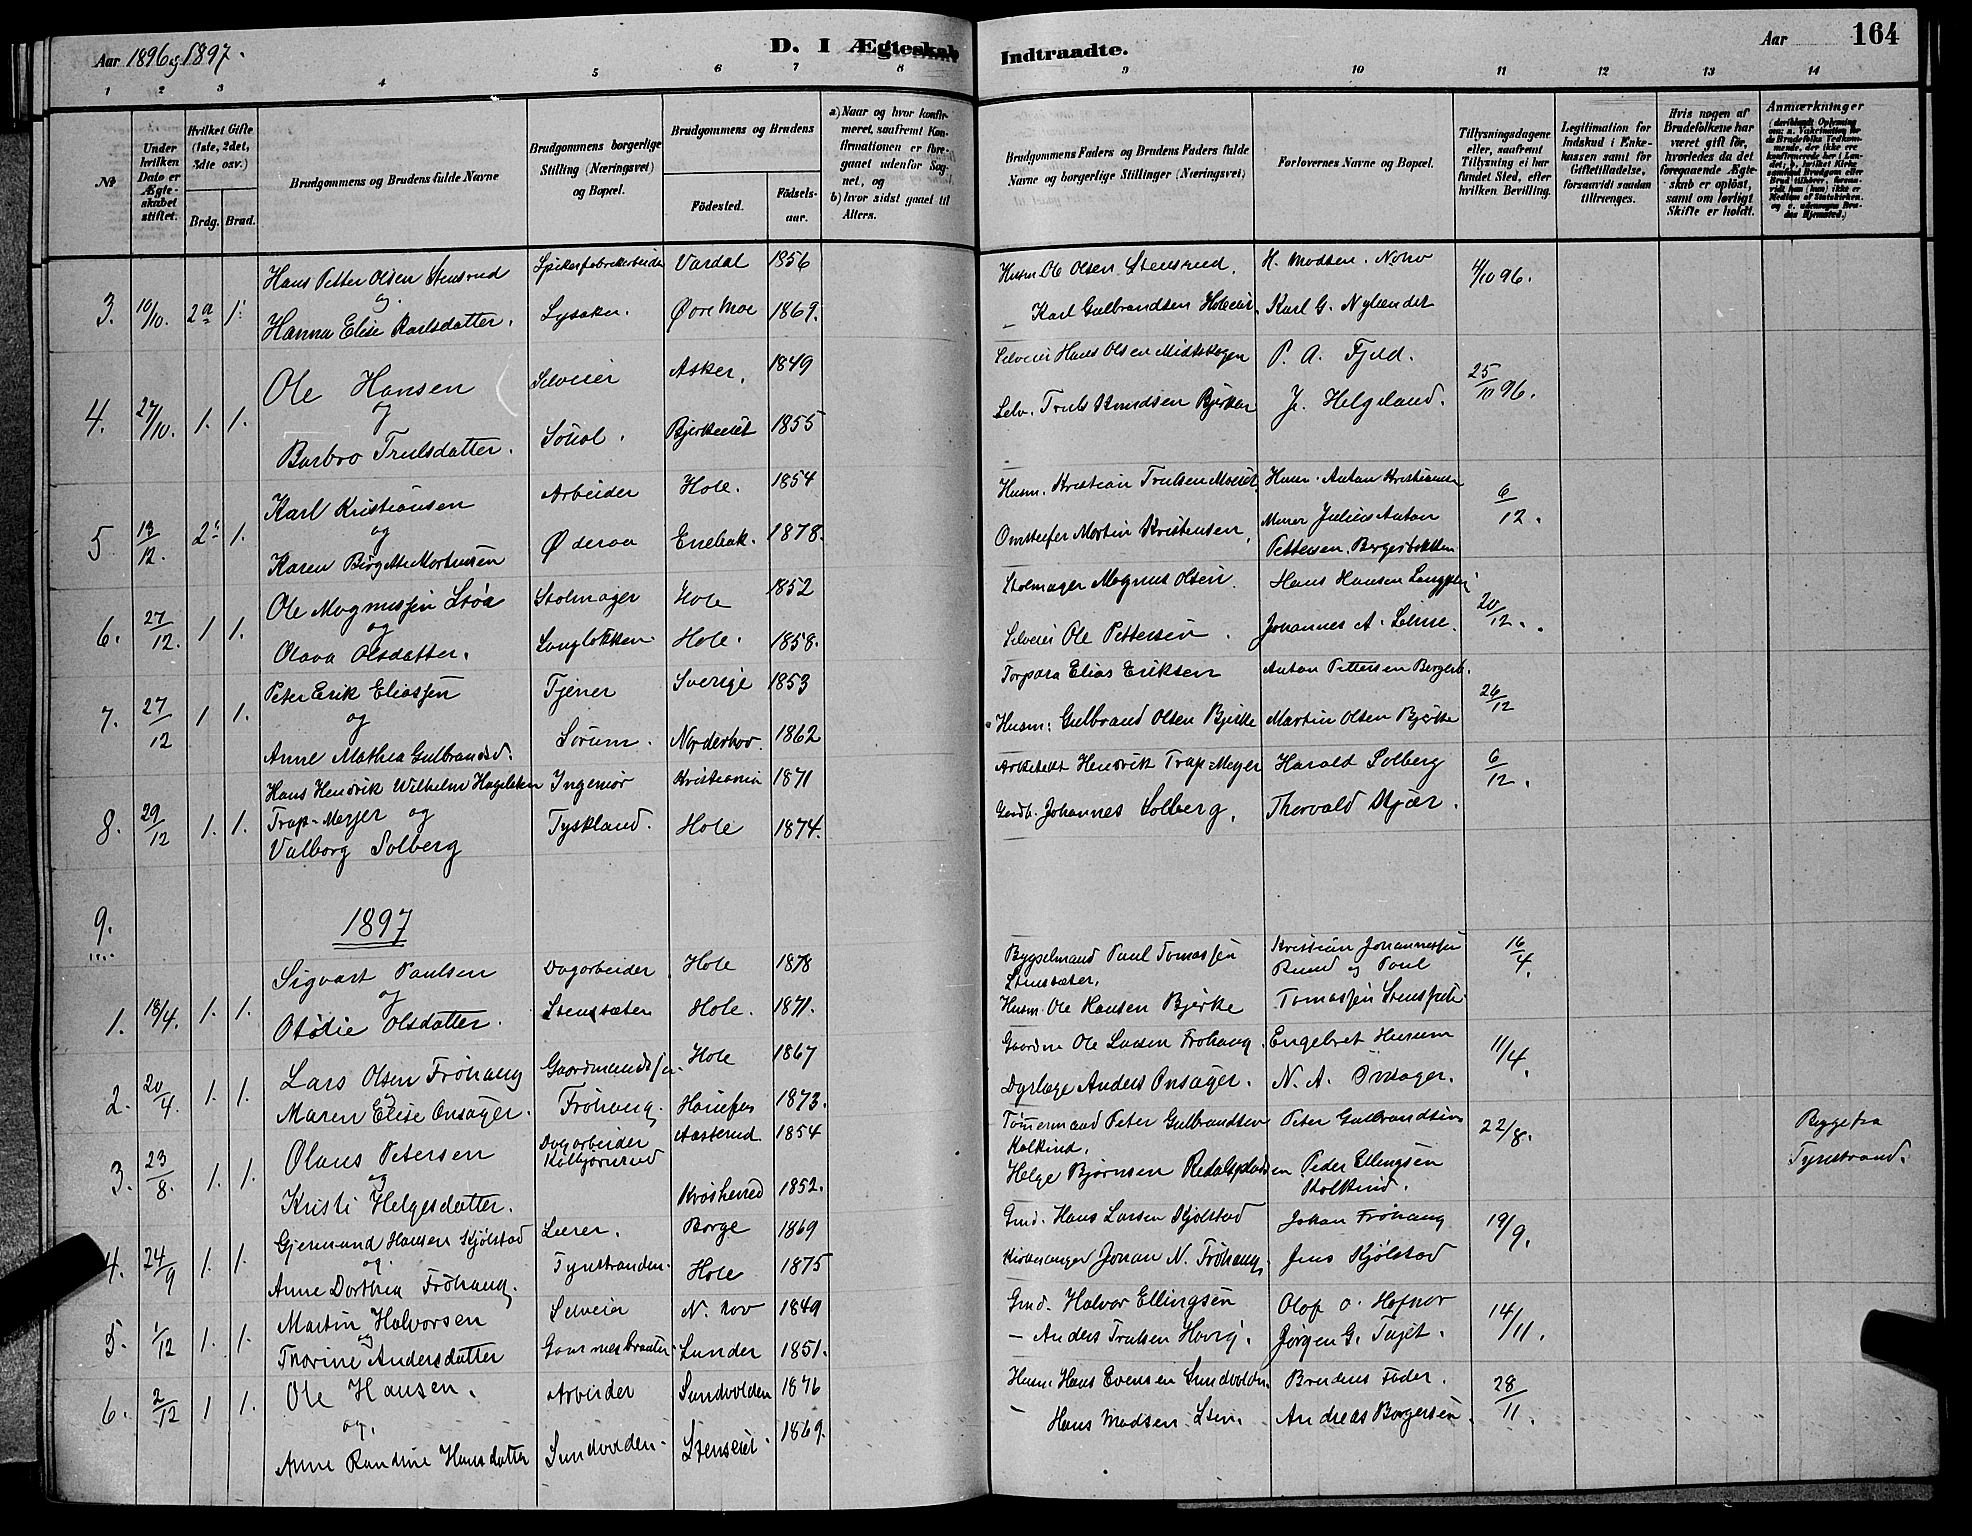 Aar 1896 og 1897.
D. I Ægteskab
Indtraadte.
Aar
164
1 2 3 4 5 6 7 8 9 10 11 12 13 14
№
Under hvilken Dato er Ægteskabet stiftet.
Hvilket Gifte (1ste, 2det, 3die osv.)
Brdg. Brud.
Brudgommens og Brudens fulde Navne
Brudgommens borgerlige Stilling (Næringsvei) og Bopæl.
Brudgommens og Brudens
Fødested.
Fødselsaar.
a) Naar og hvor konfirmeret, saafremt Konfirmationen er foregaaet udenfor Sognet, og
b) hvor sidst gaaet til Alters.
Brudgommens Faders og Brudens Faders fulde Navne og borgerlige Stillinger (Næringsvei)
Forlovernes Navne og Bopæl.
Tillysningsdagene eller, saafremt Tillysning ei har fundet Sted, efter hvilken Bevilling.
Legitimation for Indskud i Enkekassen samt for Giftetilladelse, forsaavidt saadan tiltrænges.
Hvis nogen af Brudefolkene har været gift før, hvorledes da det foregaaende Ægteskab er opløst, samt om lovligt Skifte er holdt.
Anmærkninger
3. 10/10. 2a 1. Hans Petter Olsen Stensrud Spikerfabrikarbeider Vardal 1856 Husm. Ole Olsen Stensrud. H. Madsen. Nohv 4/10 96.
og
Hanna Elise Karlsdatter. Lysaker. Øvre Moe 1869. – Karl Gulbrandsen Holeeiet. Karl G. Nylændet
4. 27/10. 1. 1. Ole Hansen Selveier Asker. 1849 Selveier Hans Olsen Midtskogen P. A. Fjeld. 25/10 96.
og
Barbro Trulsdatter. Sønol. Bjerkeeiet 1855 Selv. Truls Knudsen Bjerke J. Helgeland.
5 13/12. 2. 1. Karl Kristiansen Arbeider Hole. 1854 Husm. Kristian Trulsen Moeiet Husm. Anton Kristiansen 6/12.
og
Karen Birgitte Mortensen Øderaa Enebak. 1878. Mortin Kristensen, Murer Julius Anton
Pettersen, Bergerbakken
6. 27/12. 1 1. Ole Magnussen Støa Stolmager Hole 1852 Stolmager Magnus Olsen Hans Hansen 20/12.
og
Olava Olsdatter. Hole. 1858. Selveier Ole Pettersen. Johannes A. Lehne.
7. 27/12 1 1. Peter Erik Eliassen Tjener Sverige 1853 Torpare Elias Eriksen Anton Pettersen Bergerb. 26/12
og
Anne Mathea Gulbrandsd. Sørum. Norderhov. 1862 Husm. Gulbrand Olsen Bjerke Martin Olsen Bjerke
8. 29/12 1. 1. Hans Hendrik Wilhelm Hagelsten Ingeniør Kristiania 1871 Arkitekt Henrik Trap-Meyer Harald Solberg 6/12.
Trap-Meyer og
Valborg Solberg Tyskland. Hole 1874. Gmdb. Johannes Solberg. Thorvald Skjær.
9.
1897
1. 18/4. 1. 1. Sigvart Paulsen Dagarbeider Hole 1878 Bygselmand Paul Tomassen Kristian Johannessen 16/4.
og Stensæter, Rund og Paul
Otodie Olsdatter. Stensæter Hole. 1871. Husm. Ole Hansen Bjerke Tomassen
2. 20/4. 1. 1. Lars Olsen Frøhaug Gaardmandssøn Hole 1867 Gaardm Ole Larsen Frohaug. Engebret Husum 11/4.
og
Maren Elise Onsager. Frøhaug. Hønefos 1873. Dyrlæge Anders Onsager. N. A. Onsager.
3. 23/8. 1. 1. Olaus Petersen Dagarbeider Aasterud 1854 Tømmermand Peter Gulbrandsen Peter Gulbrandsen 22/8. Begge fra
og Kolbjørnrud Kolkind, Tyristrand.
Kristi Helgesdatter. Krøsherred 1852. Helge Bjørnsen Peder Ellingsen
Kolkind.
4. 24/9 1. 1. Gjermund Hansen Kjølstad Lærer. Borge 1869 Gmd. Hans Larsen Kjølstad Johan Frøhaug 19/9.
og
Anne Dorthea Frøhaug. Tyristranden. Hole 1875 Kirkesanger Johan N. Frøhaug. Jens Kjølstad
5. 1/12 1. 1. Martin Halvorsen Selveier N. hov 1849 Gmd. Halvor Ellingsen Olaf O. Hofnor 14/11.
og
Thorine Andersdatter Lunder 1851. – Anders Trulsen Hovig. Jørgen G. Tajet.
6. 2/12 1 1. Ole Hansen. Arbeider Sundvolden 1876 Husm. Hans Evensen Sundvolden Brudens Fader. 28/11.
og.
Anne Randine Hansdatter Sundvolden. Stenseiet. 1869. – Hans Madsen Sten. Andreas Borgersen